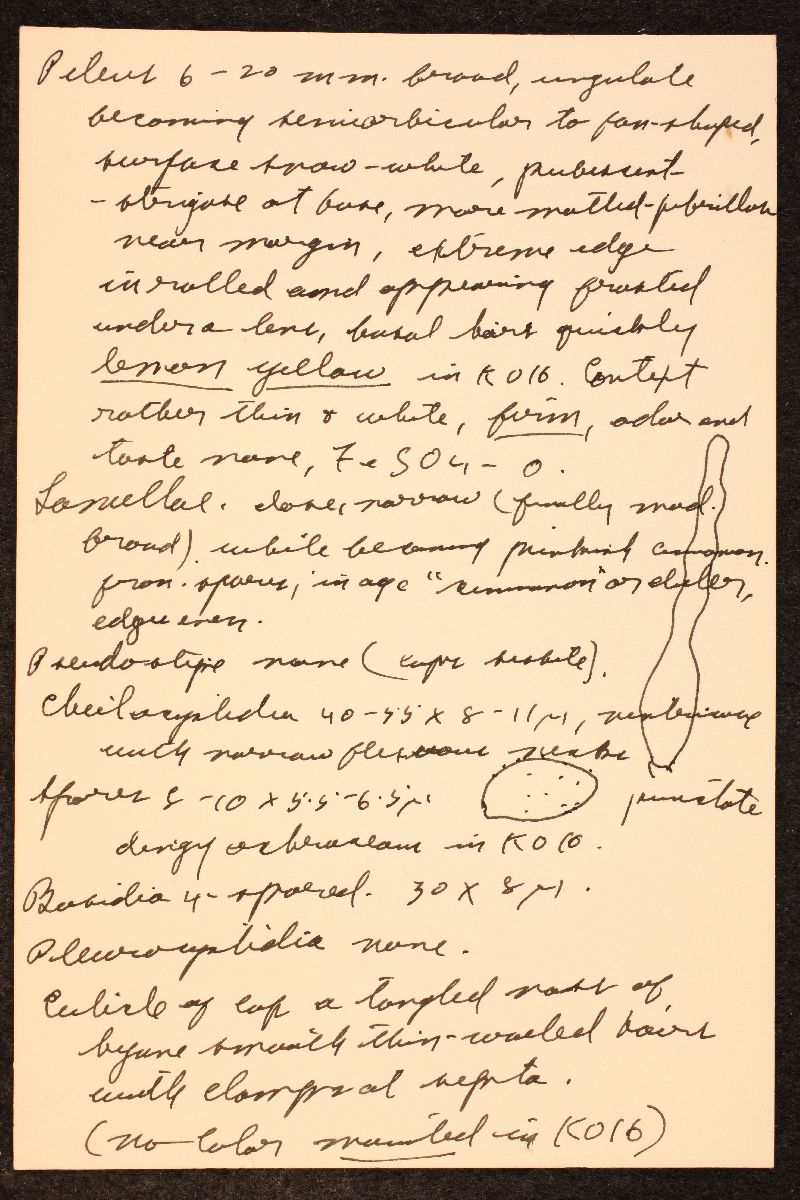 Pileus 6-20 mm. broad, ungulate
becoming semiorbicular to fan-shaped,
surface snow-white, pubescent-
-strigose at base, more matted-fibrillose
near margin, extreme edge
inrolled and appearing frosted
under a lens, basal hairs quickly
lemon yellow in KOH. Context
rather thin & white, firm, odor and
taste none, FeSO4 - 0.
Lamellae. close, narrow (finally mod.
broad). white becoming pinkish cinnamon
from spores, in age "cinnamon" or duller,
edges even.
Pseudostipe none (caps sessile).
Cheilocystidia 40-55 X 8-11 µ, ventricose
with narrow flexuous necks
Spores 8-10 X 5.5-6.5 µ punctate
dingy ochraceous in KOH.
Basidia 4-spored. 30 X 8 µ.
Pleurocystidia none.
Cuticle of cap a tangled mass of
hyaline smooth thin-walled hairs
with clamps at septa.
(no color mounted in KOH)